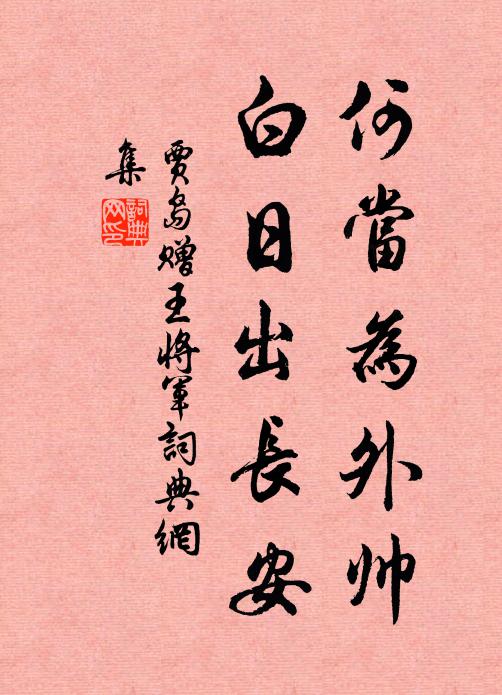 何當為外帅
白日出長安
賈島贈王將軍詞典網
集
詞典
网印